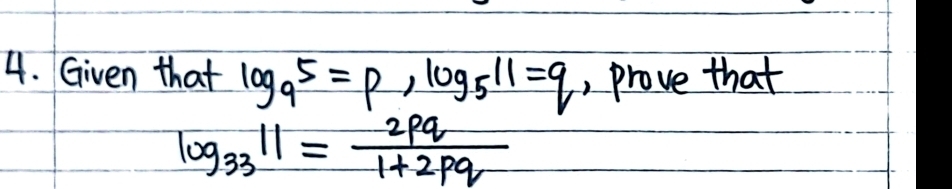 4. Given that log₉5 = p, log₅11 = q, prove that
log₃₃11 = 2pq / 1+2pq